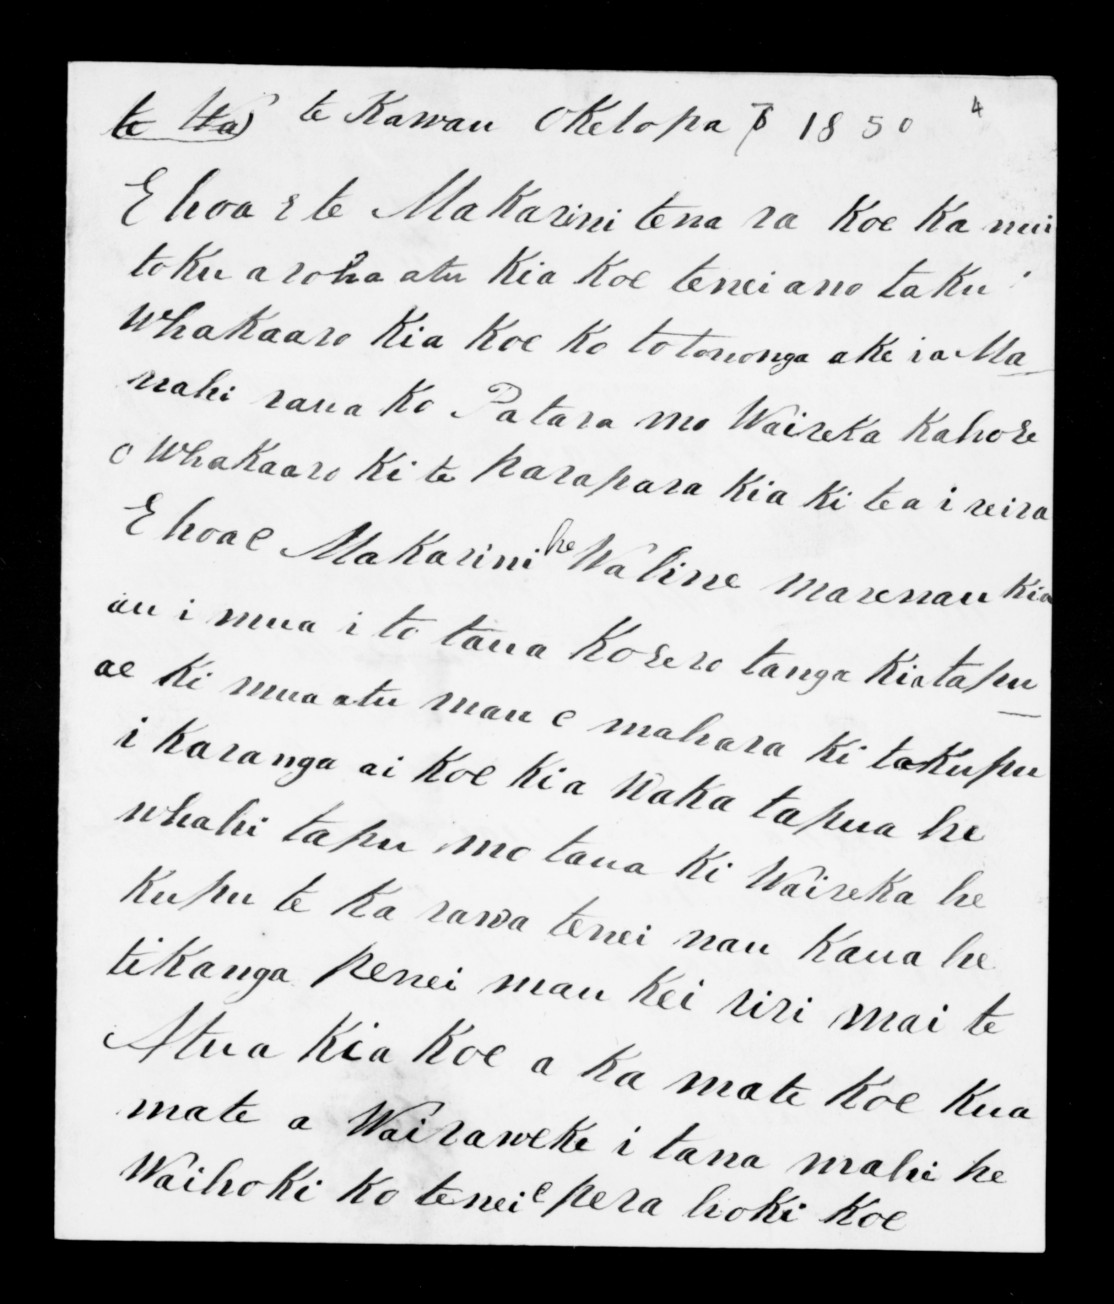 te Wa) te Kawau Oketopa 7 1850 4
E hoa e te Makarini tena ra Koe Ka nui
toku aroha atu Kia Koe tenei ano taku
Whakaaro Kia Koe Ko to tononga ake i a Ma
nahi raua Ko Patara mo Waireka Kahore
o Whakaaro Ki te parapara Kia Kitea i reira
E hoa e Makarini he Watine mare nau Kia
au i mua i to taua Korerotanga Kia tapu
ae Ki mua atu mau e mahara Ki ta Kupu
i Karanga ai Koe Kia Waka tapua he
whahi tapu mo taua Ki Waireka he
Kupu te Ka rawa tenei nau Kaua he
tikanga penei mau Kei riri mai te
Atua Kia Koe a Ka mate Koe Kua
mate a Wairaweke i tana mahi he
Waihoki Ko tenei e pera hoki Koe